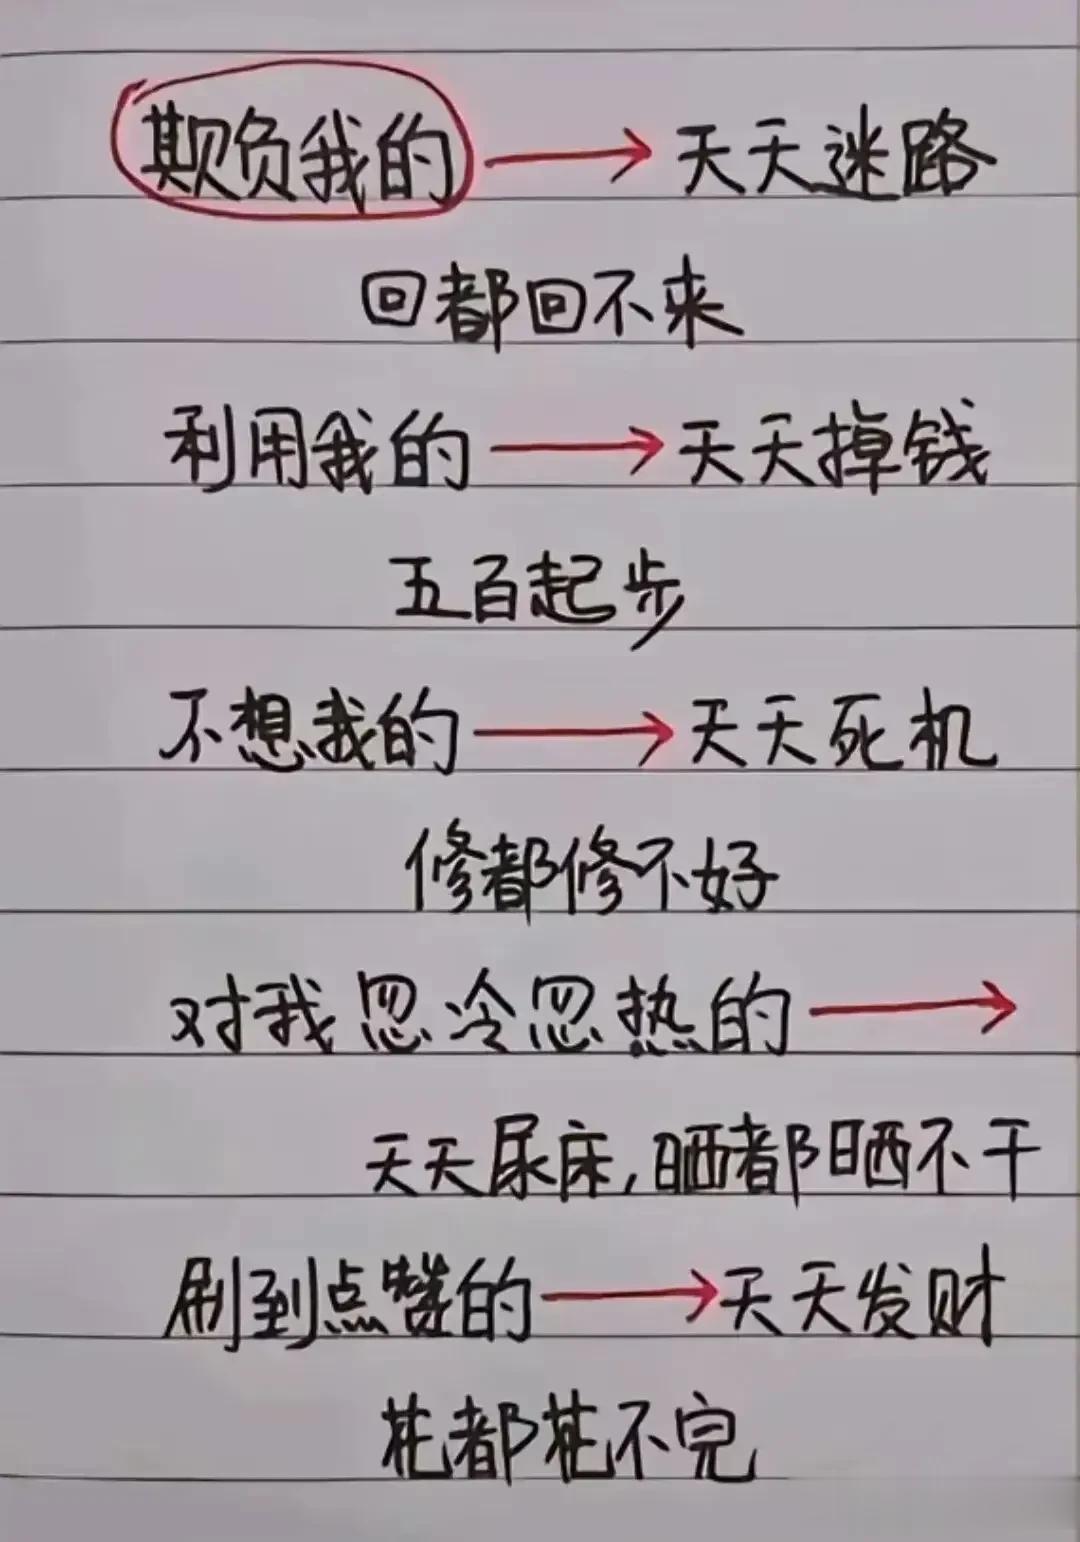 欺负我的→天天迷路
回都回不来
利用我的→天天掉钱
五百起步
不想我的→天天死机
修都修不好
对我忽冷忽热的→
天天尿床,晒都晒不干
刷到点赞的→天天发财
花都花不完